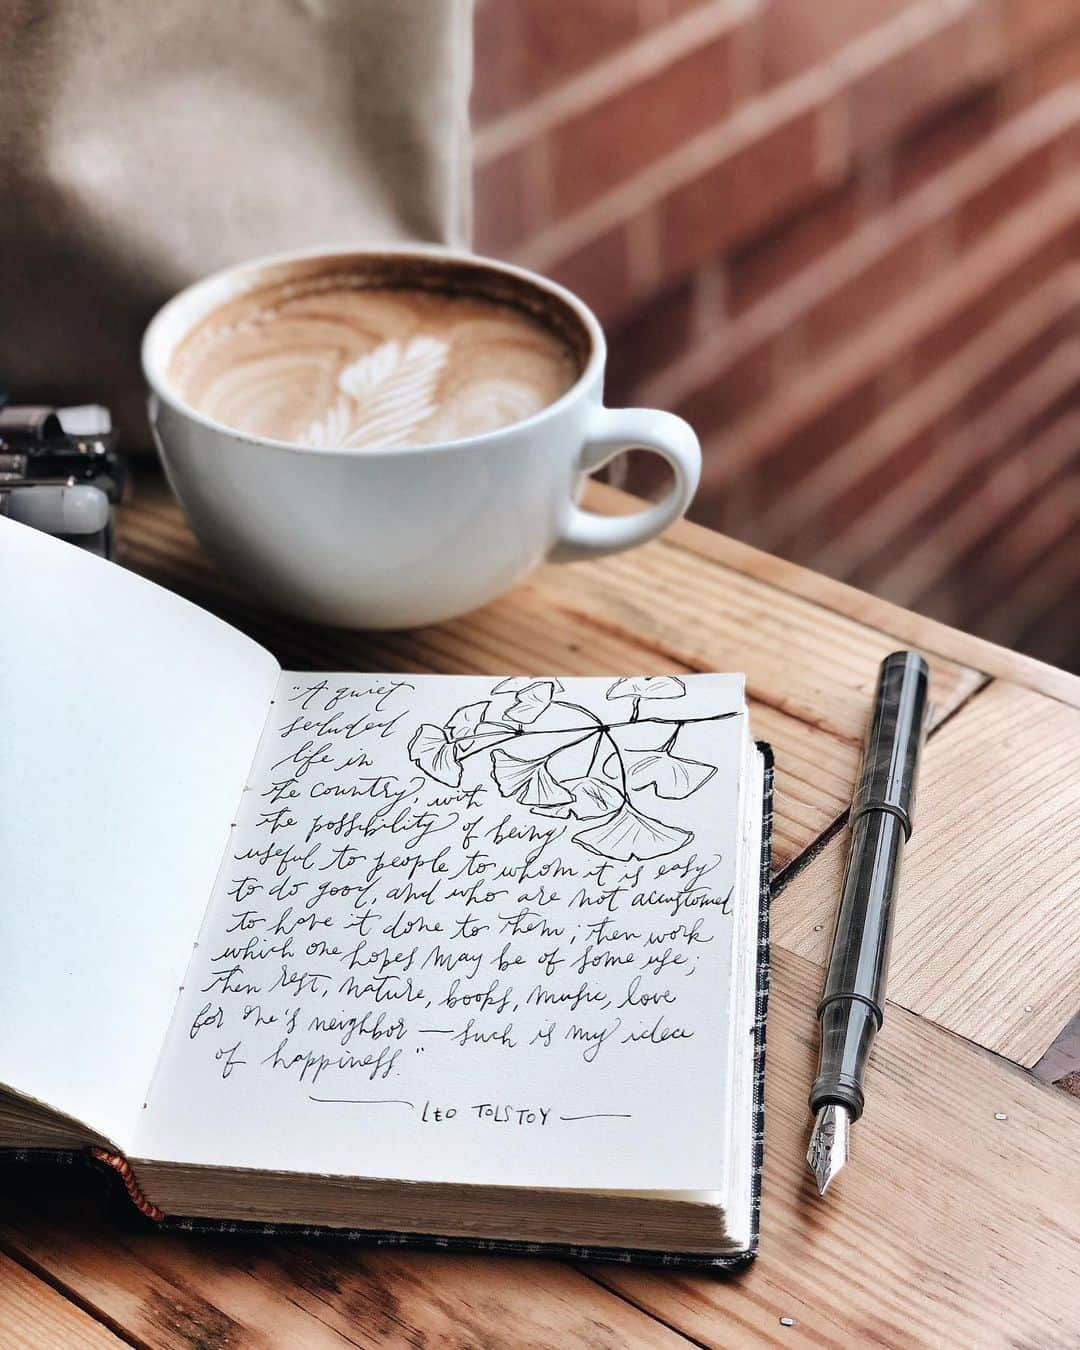 "A quiet
secluded
life in
the country, with
the possibility of being
useful to people to whom it is easy
to do good, and who are not accustomed
to have it done to them; then work
which one hopes may be of some use;
then rest, nature, books, music, love
for one's neighbor — such is my idea
of happiness."
LEO TOLSTOY